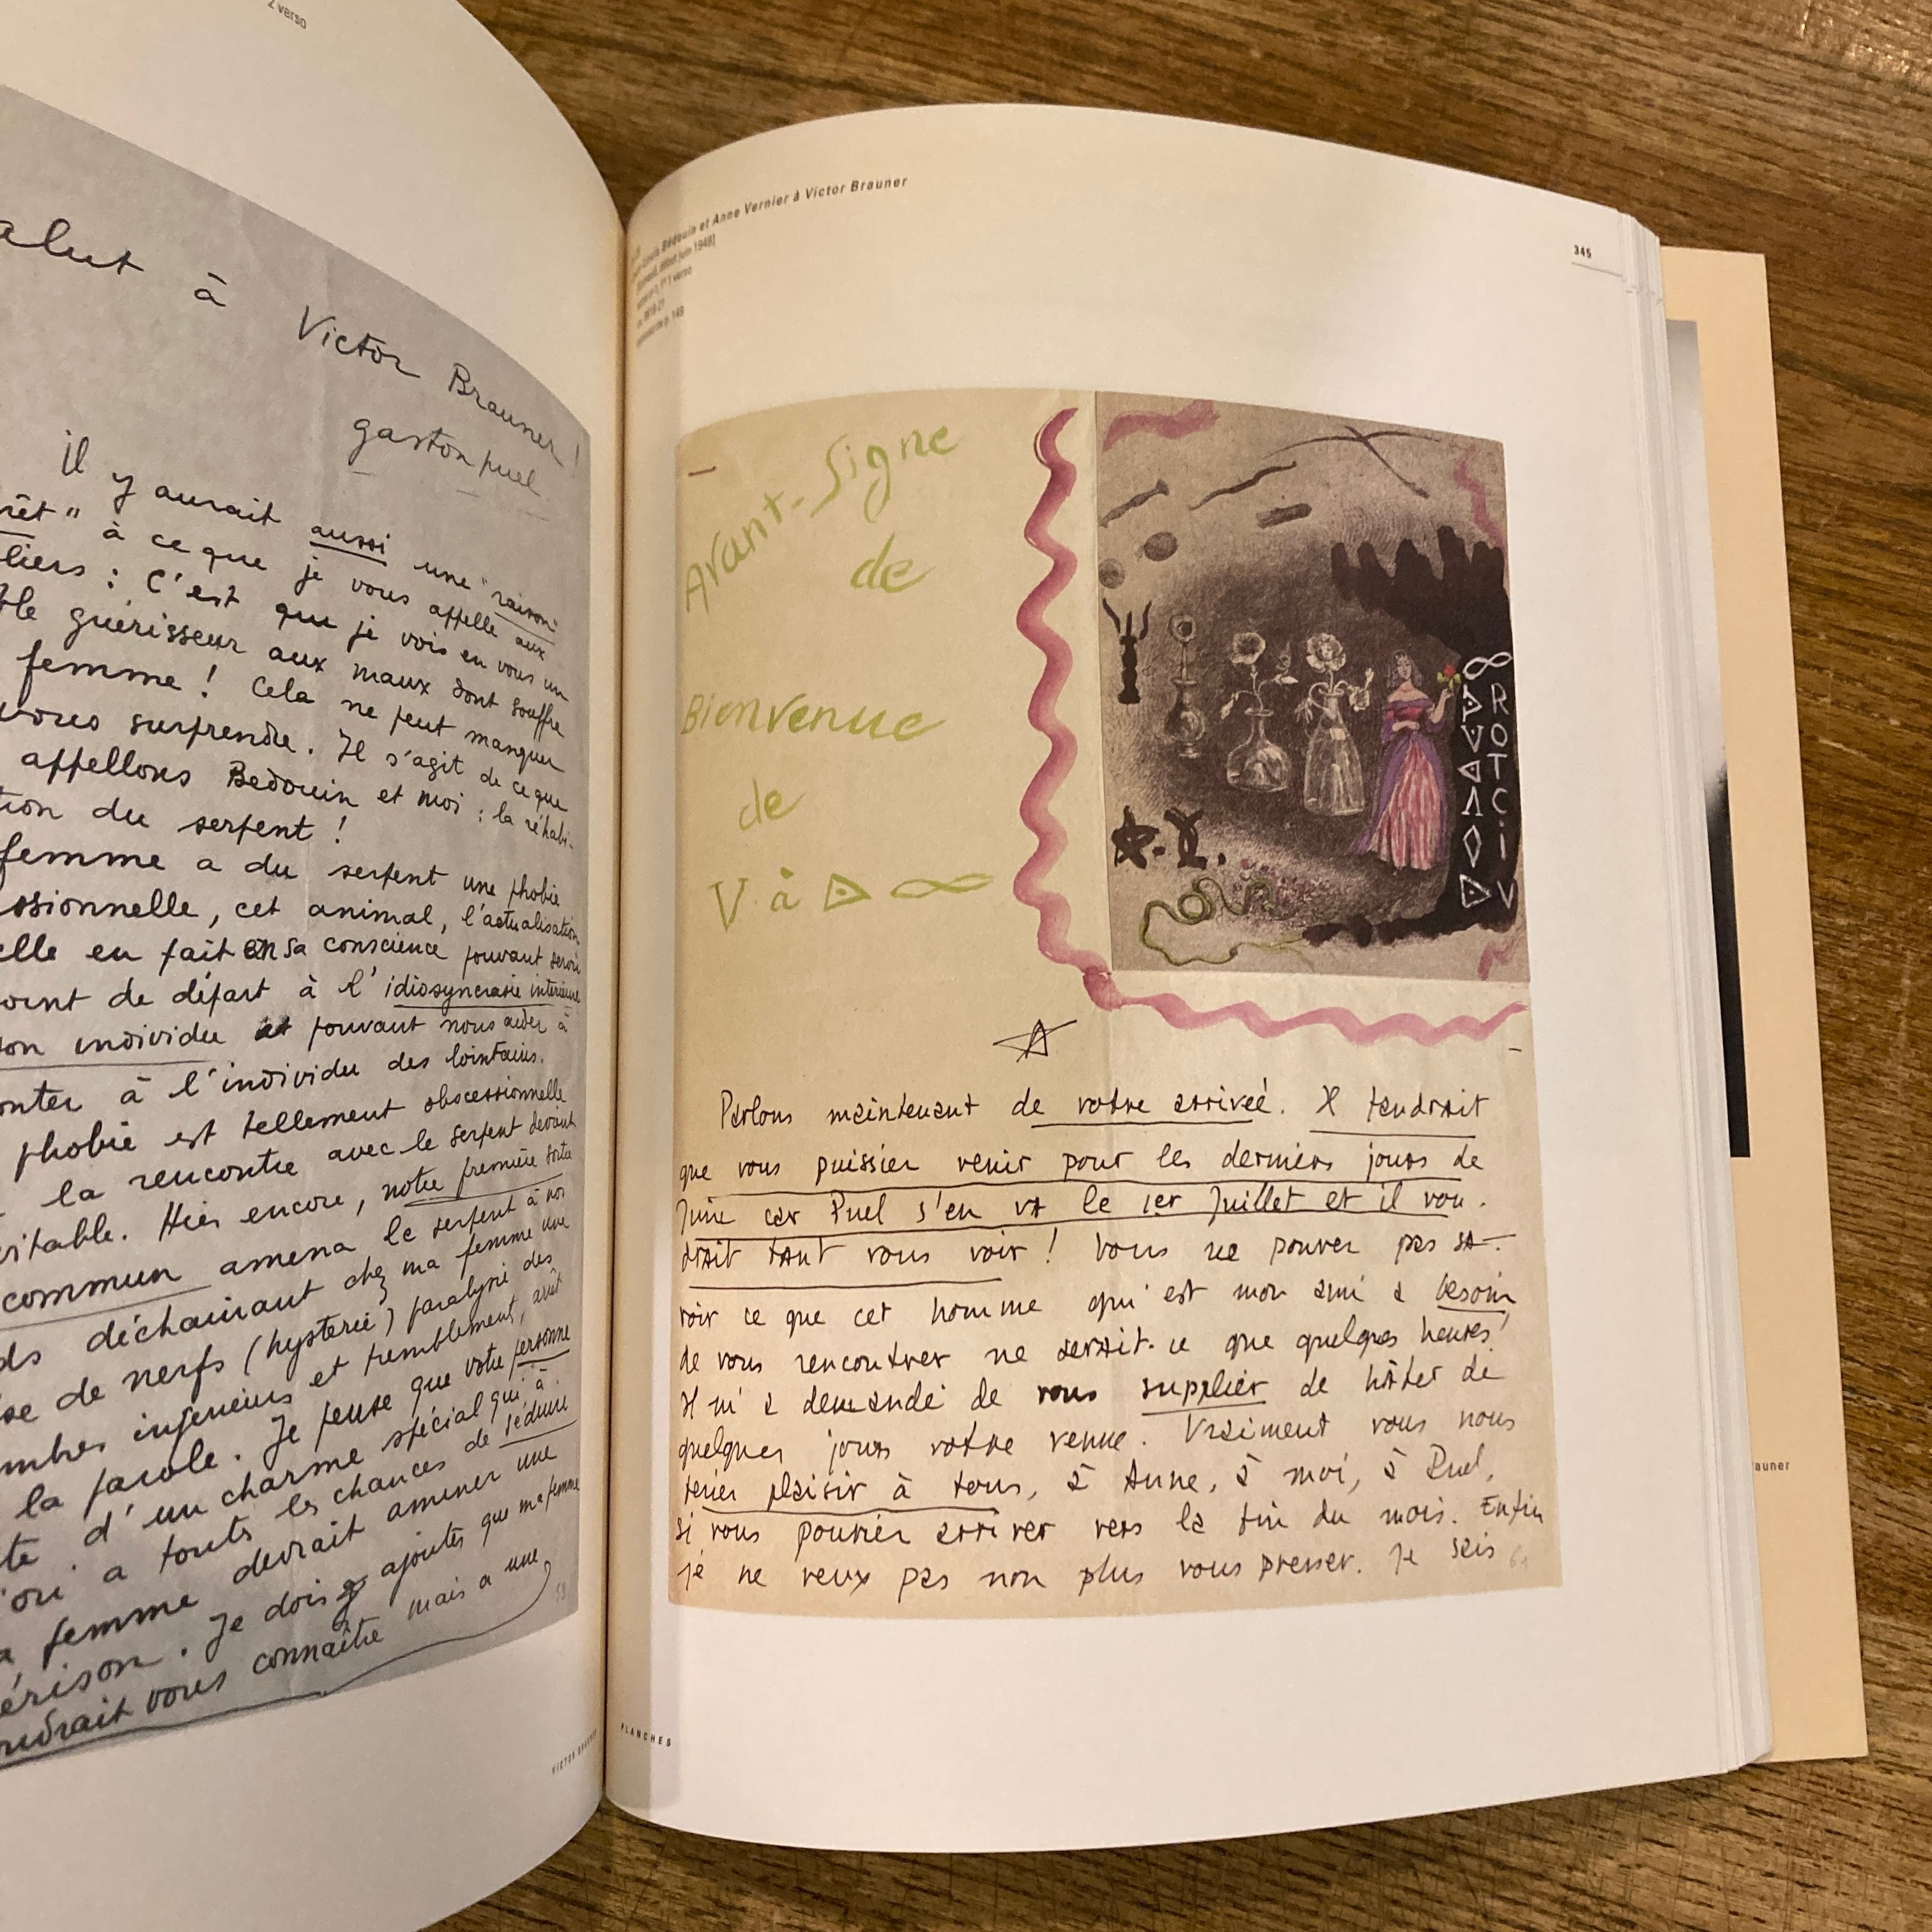 2 verso
alut à Victor Brauner !
gaston puel
Il y aurait aussi une "raison
rêt" à ce que je vous appelle aux
liers : C'est que je vois en vous un
le guérisseur aux maux dont souffre
femme ! Cela ne peut manquer
vous surprendre. Il s'agit de ce que
appellons Bedouin et moi : la réhabi-
tion du serpent !
femme a du serpent une phobie
ssionnelle, cet animal, l'actualisation
elle en fait en sa conscience pouvant servir
oint de départ à l'idiosyncrasie intérieure
son individu et pouvant nous aider à
onter à l'individu des lointains.
phobie est tellement obscessionnelle
la rencontre avec le serpent devient
vitable. Hier encore, notre première sortie
commun amena le serpent à nos
ds déchainant chez ma femme une
ise de nerfs (hysterie) paralysie des
mbres inferieurs et tremblement, arrêt
la parole. Je pense que votre personne
te d'un charme spécial qui à
oui a touts les chances de séduire
a femme devrait amener une
érison. Je dois ajouter que ma femme
oudrait vous connaître mais a une
VICTOR BRAUNER
Bédouin et Anne Vernier à Victor Brauner
début juin 1948]
1 verso
p. 149
345
Avant-Signe
de
Bienvenue
de
V à ▷ ∞
∞
R
O
T
C
i
V
Parlons maintenant de votre arrivée. Il faudrait
que vous puissiez venir pour les derniers jours de
Juin car Puel s'en va le 1er Juillet et il vou-
drait tant vous voir ! Vous ne pouvez pas sa-
voir ce que cet homme qui est mon ami a besoin
de vous rencontrer ne serait-ce que quelques heures !
Il m'a demandé de vous supplier de hâter de
quelques jours votre venue. Vraiment vous nous
feriez plaisir à tous, à Anne, à moi, à Puel,
si vous pouviez arriver vers la fin du mois. Enfin
je ne veux pas non plus vous presser. Je sais
61
PLANCHES
auner